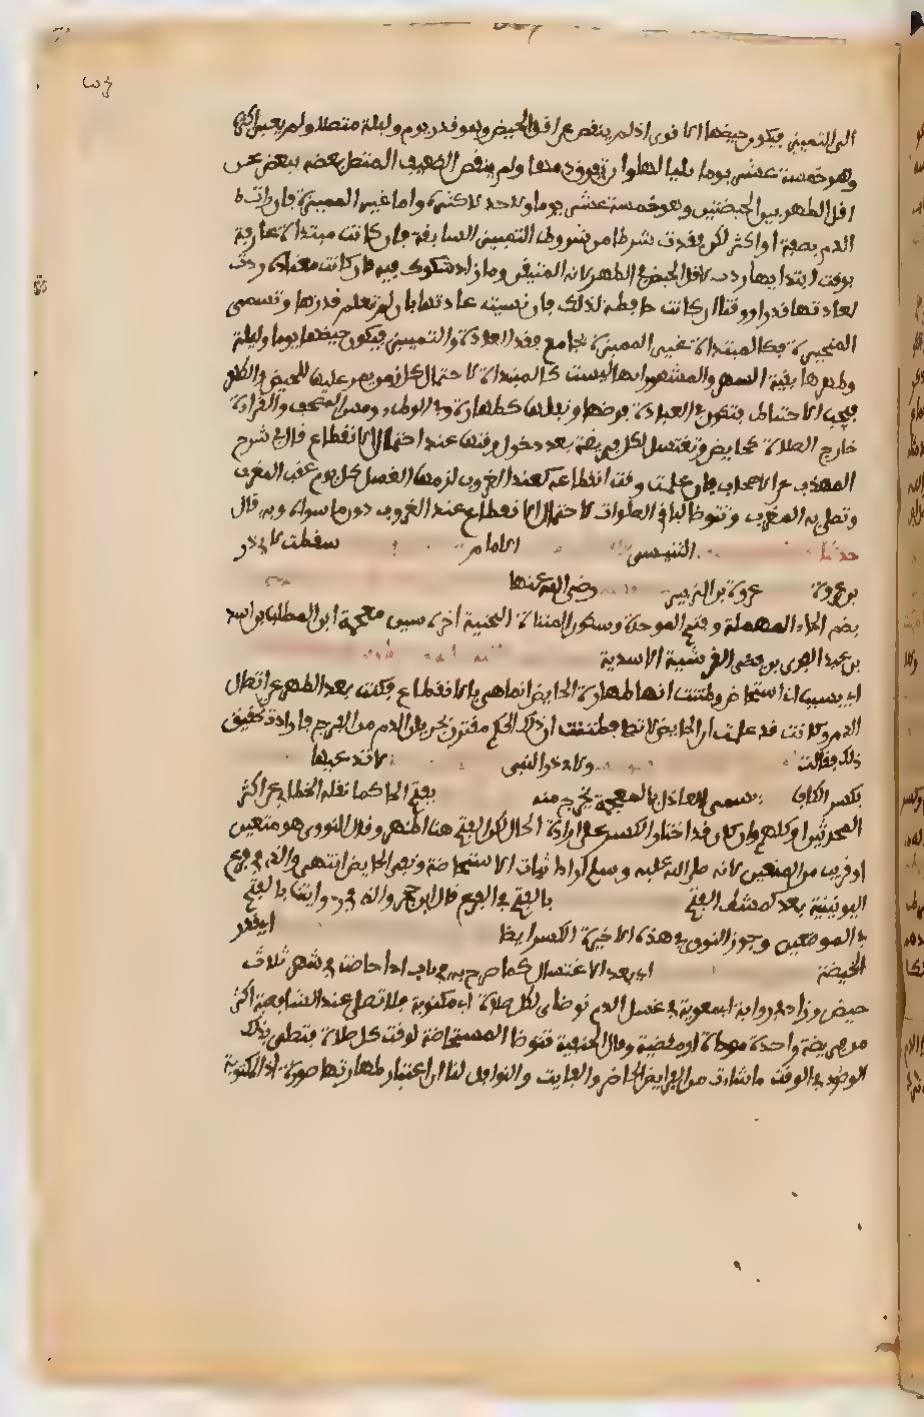 الى التمييز فيكون حيضها الاقوى اذ لم ينقص عن اقل الحيض وهو قدر يوم وليلة متصلا ولم يعبر اكثره
وهو خمسة عشر يوما بلياليها وان تفرق دمها ولم ينقص الضعيف المتصل بعضه ببعض عن
اقل الطهر بين الحيضتين وهو خمسة عشر يوما ولا حد لاكثره واما غير المميزة فان رات
الدم بصفة او اكثر لكن فقدت شرطا من شروط التمييز السابقة فان كانت مبتداة عارفة
بوقت ابتدايها ردت لاقل الحيض في الطهر لانه المتيقن وما زاد مشكوك فيه فان كانت معتادة ردت
لعادتها قدرا ووقتا ان كانت حافظة لذلك فان نسيت عادتها بان لم تعلم قدرها وتسمى
المتحيرة فكالمبتداة غير المميزة بجامع فقد العادة والتمييز فيكون حيضها يوما وليلة
وطهرها بقية الشهر والمشهور انها ليست كالمبتداة لاحتمال كل زمن يمر عليها للحيض والطهر
فيجب الاحتياط فتكون في العبادة فرضها ونفلها كطاهرة وفي الوطء ومس المصحف والقراءة
خارج الصلاة كحايض وتغتسل لكل فريضة بعد دخول وقتها عند احتمال الانقطاع قال في شرح
المهذب عن الاصحاب فان علمت وقت انقطاعه كعند الغروب لزمها الغسل كل يوم عقب الغروب
وتصلي به المغرب وتتوضا لباقي الصلوات لاحتمال الانقطاع عند الغروب دون ما سواه وبه قال
حدثنا التنيسي الامام سقطت لابي ذر
بن عروة عروة بن الزبير رضي الله عنها
بضم الحاء المهملة وفتح الموحدة وسكون المثناة التحتية اخره شين معجمة ابن المطلب بن اسد
بن عبد العزى بن قصي القرشية الاسدية
اي بسبب اني استحاض وظننت انها طهارة الحايض انما هي بالانقطاع فكنت بعد الطهر عن اتصال
الدم وكانت قد علمت ان الحايض لا تصلي فظننت ان ذلك الحكم مقترن بجريان الدم من الفرج فارادت تحقيق
ذلك فقالت ولابي ذر النبي لانه عيبها
بكسر الكاف يسمى العاذل بالمعجمة يخرج منه بفتح الحا كما نقله الخطابي عن اكثر
المحدثين او كلهم وان كان قد اختار الكسر على ارادة الحال لكن الفتح هنا اظهر وقال النووي هو متعين
او قريب من المتعين لانه صلى الله عليه وسلم اراد اثبات الاستحاضة ونفي الحيض انتهى والذي في فرع
اليونينية بعد كشط الفتح بالفتح في الفرع قال ابن حجر والذي في روايتنا بالفتح
في الموضعين وجوز النووي في هذه الاخيرة الكسر ايضا اي قدر
الحيضة اي بعد الاغتسال كما صرح به في باب اذا حاضت في شهر ثلاث
حيض وزاد في رواية ابي معوية في غسل الدم توضاي لكل صلاة اي مكتوبة فلا تصلي عند الشافعية اكثر
من فريضة واحدة موداة او مقضية وقال الحنفية تتوضا المستحاضة لوقت كل صلاة فتصلي بذلك
الوضوء في الوقت ما شات من الفرايض الحاضر والفايت والنوافل لنا ان اعتبار طهارتها ضرورة اذ المكتوبة